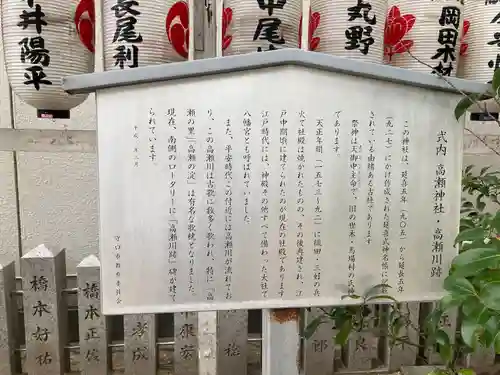 井陽平
長尾
中尾
丸野
岡田
武内 高瀬神社・高瀬川跡
この神社は、延喜五年(九〇五)から延長五年
(九二七)にかけ作成された延喜式神名帳に記載
されている由緒ある古社であります。
祭神は天御中主命で、旧の世木・馬場村の氏神
であります。
天正年間(一五七三〜九二)に織田・三好の兵
火で社殿は焼かれたものの、その後再建され、江
戸中期頃に建てられたのが現在の社殿であります。
江戸時代には、神殿その他すべて備わった大社で
八幡宮とも呼ばれていました。
また、平安時代この付近には高瀬川が流れてお
り、この高瀬川は古歌に数多く歌われ、特に「高
瀬の里」「高瀬の淀」は有名な歌枕となりました。
現在、南側のロータリーに「高瀬川跡」碑が建て
られています。
守口市教育委員会
橋本好祐
橋本正